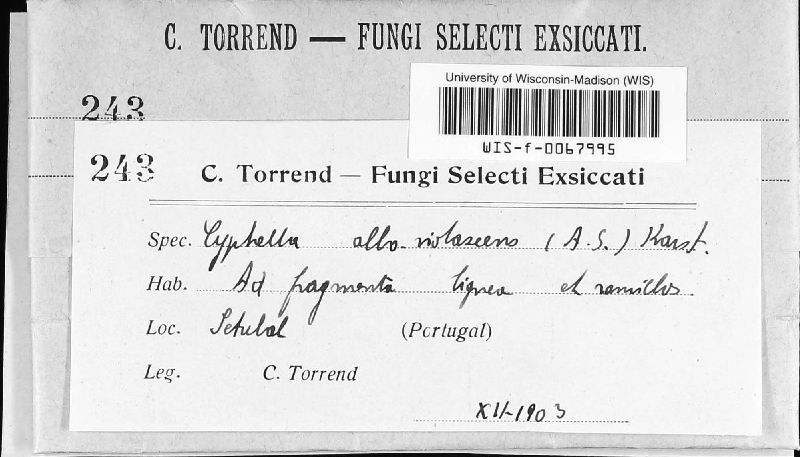 C. TORREND — FUNGI SELECTI EXSICCATI.
University of Wisconsin-Madison (WIS)
WIS-f-0067995
243
243 C. Torrend — Fungi Selecti Exsiccati
Spec. Cyphella albo-violascens (A.S.) Karst.
Hab. Ad fragmenta lignea et ramillos
Loc. Setubal (Portugal)
Leg. C. Torrend
XII-1903